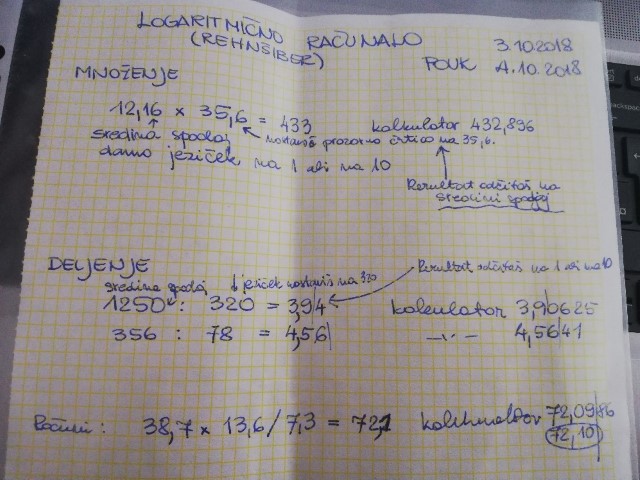 LOGARITMIČNO RAČUNALO
(REHNŠIBER)
3.10.2018
POUK 4.10.2018
MNOŽENJE
12,16 × 35,6 = 433 kalkulator 432,896
sredina spodaj nastaviš prozorno črtico na 35,6.
damo jeziček na 1 ali na 10
Rezultat odčitaš na
sredini spodaj
DELJENJE
sredina spodaj jeziček nastaviš na 320 Rezultat odčitaš na 1 ali na 10
1250 : 320 = 3,94 kalkulator 3,90625
356 : 78 = 4,56 —〃— 4,5641
Računi: 38,7 × 13,6 / 7,3 = 72,1 72,0986
72,10